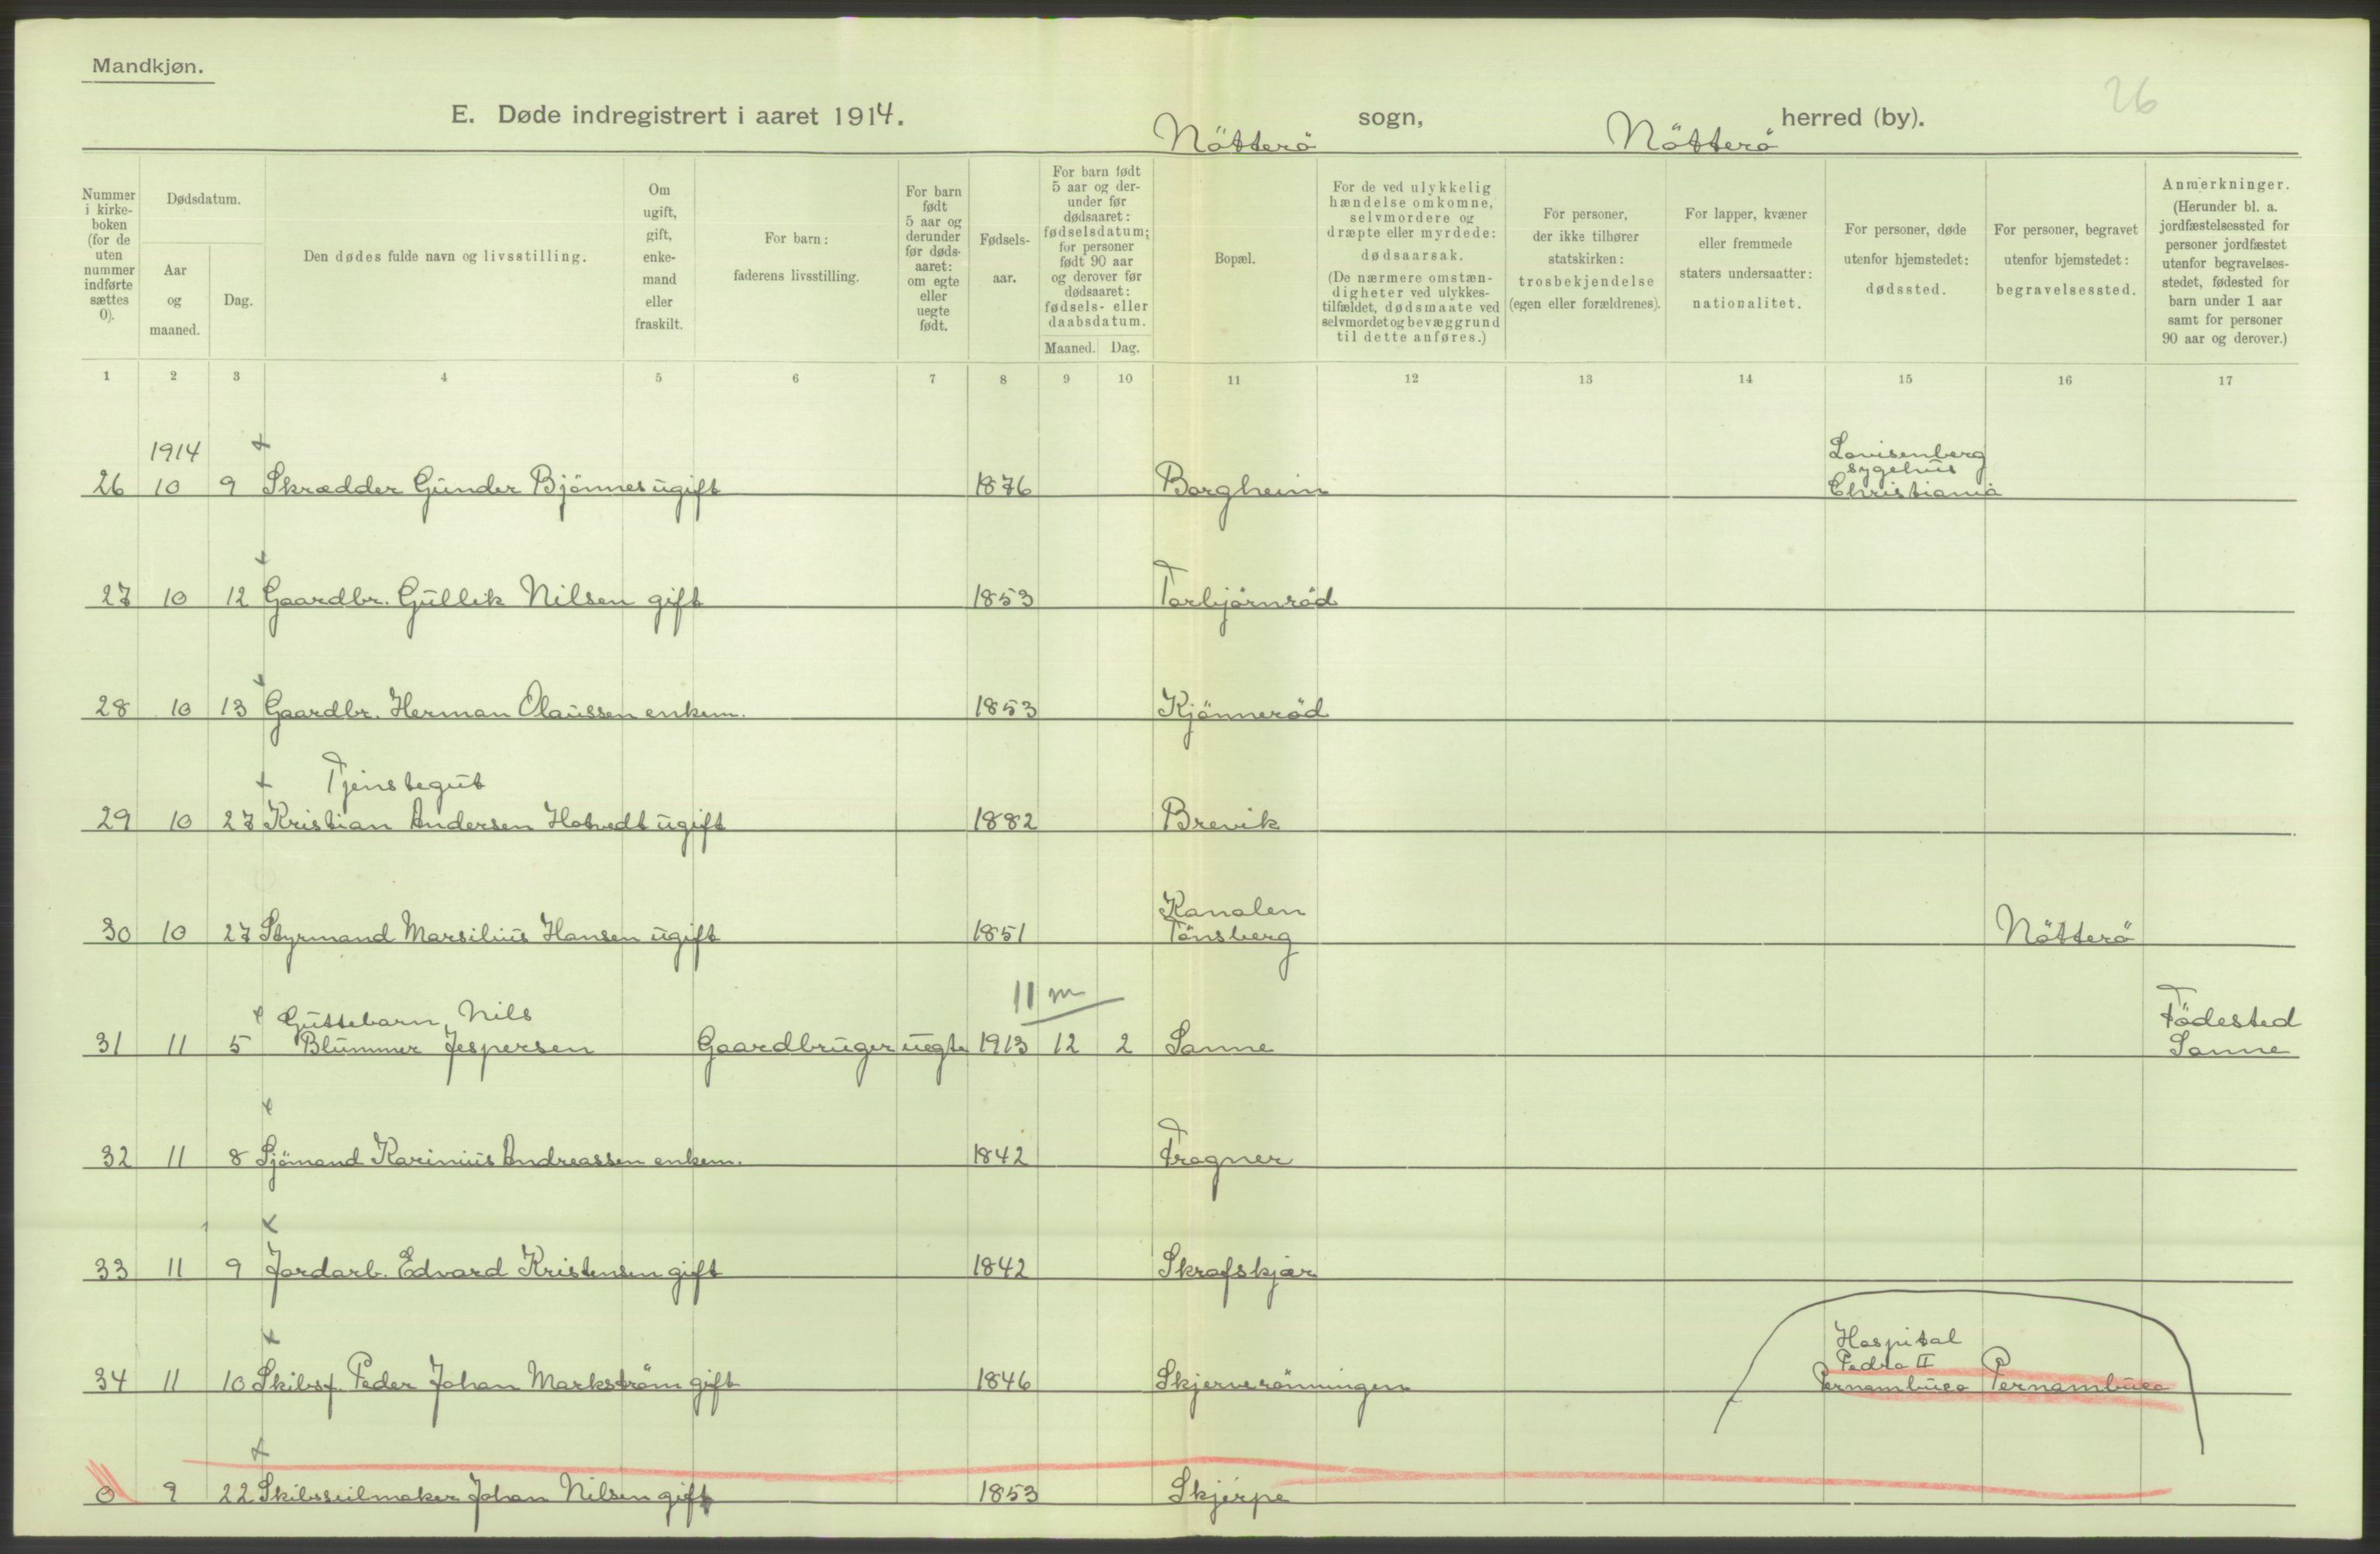 Mandkjøn.
26
E. Døde indregistrert i aaret 1914. Nötterö sogn, Nötterö herred (by).
Nummer i kirke-
boken
(for de
uten
nummer
indførte
sættes
0).
Dødsdatum.
Aar
og
maaned.
Dag.
Den dødes fulde navn og livsstilling.
Om
ugift,
gift,
enke-
mand
eller
fraskilt.
For barn:
faderens livsstilling.
For barn
født
5 aar og
derunder
før døds-
aaret:
om egte
eller
uegte
født.
Fødsels-
aar.
For barn født
5 aar og der-
under før
dødsaaret:
fødselsdatum;
for personer
født 90 aar
og derover før
dødsaaret:
fødsels- eller
daabsdatum.
Maaned. Dag.
Bopæl.
For de ved ulykkelig
hændelse omkomne,
selvmordere og
dræpte eller myrdede:
dødsaarsak.
(De nærmere omstæn-
digheter ved ulykkes-
tilfældet, dødsmaate ved
selvmordet og bevæggrund
til dette anføres.)
For personer,
der ikke tilhører
statskirken:
trosbekjendelse
(egen eller forældrenes).
For lapper, kvæner
eller fremmede
staters undersaatter:
nationalitet.
For personer, døde
utenfor hjemstedet:
dødssted.
For personer, begravet
utenfor hjemstedet:
begravelsessted.
Anmerkninger.
(Herunder bl. a.
jordfæstelsessted for
personer jordfæstet
utenfor begravelses-
stedet, fødested for
barn under 1 aar
samt for personer
90 aar og derover.)
1 2 3 4 5 6 7 8 9 10 11 12 13 14 15 16 17
1914
Lovisenberg
sygehus
26 10 9 Skrædder Gunder Bjönnes ugift 1876 Borgheim Christiania
27 10 12 Gaardbr. Gullik Nilsen gift 1853 Torbjörnröd
28 10 13 Gaardbr. Herman Olaussen enkem. 1853 Kjönneröd
Tjenstegut
29 10 27 Kristian Andersen Hotvedt ugift 1882 Brevik
Kanalen
30 10 27 Styrmand Marsilius Hansen ugift 1851 Tönsberg Nötterö
11 m
Guttebarn, Nils Födested
31 11 5 Blummer Jespersen Gaardbruger uegte 1913 12 2 Sanne Sanne
32 11 8 Sjömand Karinius Andreassen enkem. 1842 Fragner
33 11 9 Jordarb. Edvard Kristensen gift 1842 Skrafskjær
Hospital
Pedro II
34 11 10 Skibsf. Peder Johan Markström gift 1846 Skjerverönningen Pernambuco Pernambuco
0 9 22 Skibsseilmaker Johan Nilsen gift 1853 Skjerpe